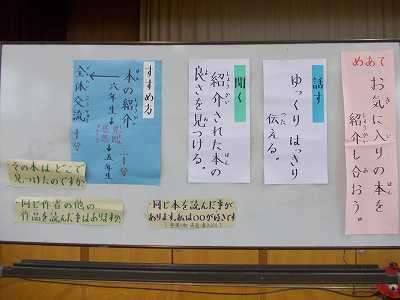 めあて
お気に入りの本を
紹介し合おう。
話す
ゆっくり はっきり
伝える。
聞く
紹介された本の
良さを見つける。
すすめ方
本の紹介 二十分
六年生⇔五年生
全体交流 十分
その本はどこで
見つけたのですか。
同じ作者の他の
作品を読んだ事はありますか。
同じ本を読んだ事が
あります。私は〇〇が好きです